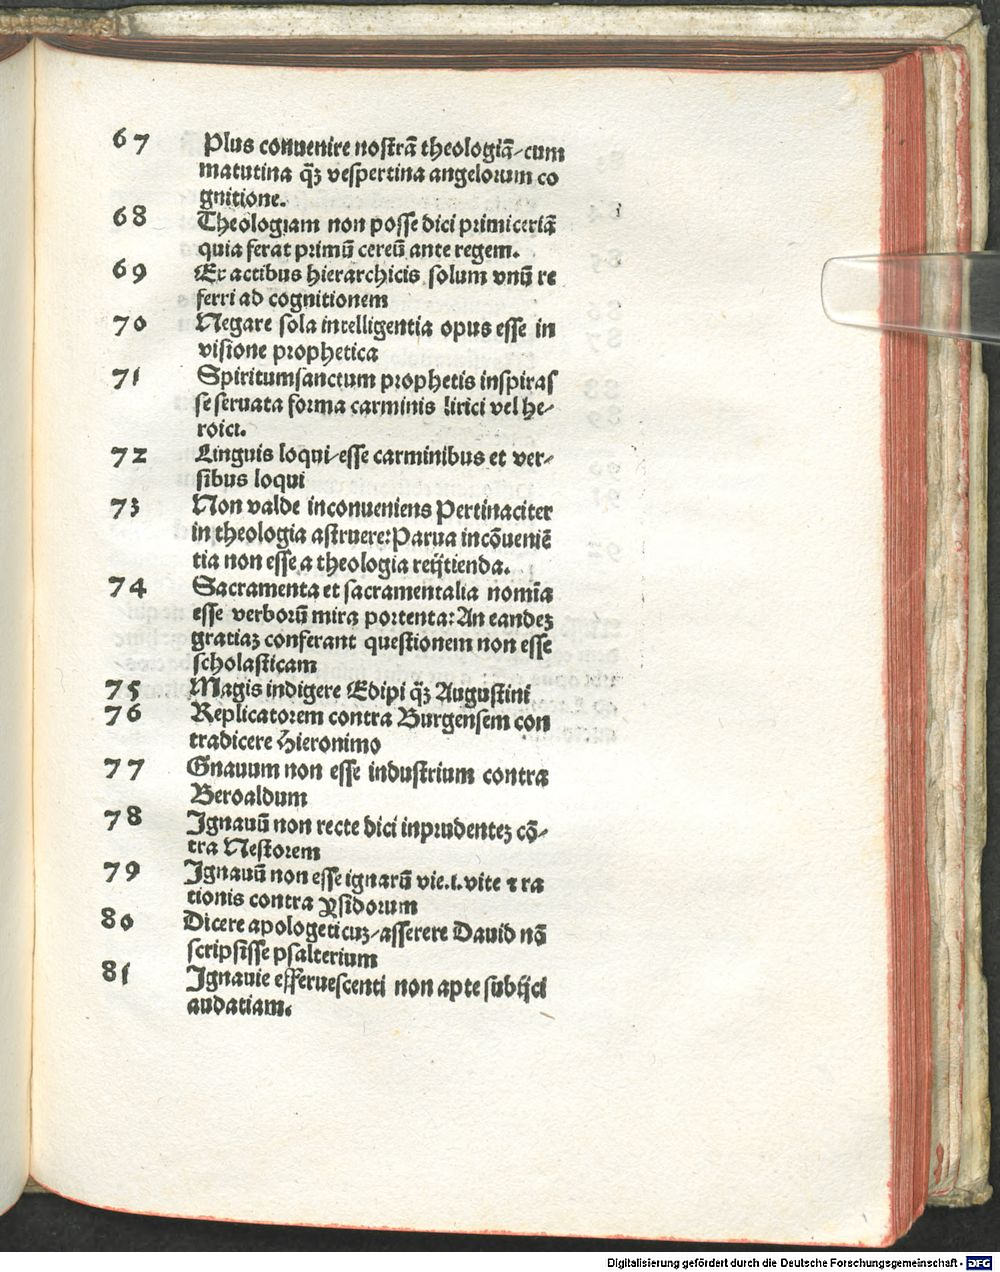 67 Plus conuenire nostrā theologiā/cum
matutina q̄ꝫ vespertina angelorum co
gnitione.
68 Theologiam non posse dici primiceriā
quia ferat primū cereū ante regem.
69 Ex actibus hierarchicis solum vnū re
ferri ad cognitionem
70 Negare sola intelligentia opus esse in
visione prophetica
71 Spiritumsanctum prophetis inspiras
se seruata forma carminis lirici vel he/
roici.
72 Linguis loqui/esse carminibus et ver/
sibus loqui
73 Non valde inconueniens Pertinaciter
in theologia astruere: Parua incōueniē
tia non esse a theologia reijtienda.
74 Sacramenta et sacramentalia nomīa
esse verborū mira portenta: An eandeꝫ
gratiaꝫ conferant questionem non esse
scholasticam
75 Magis indigere Edipi q̄ꝫ Augustini
76 Replicatorem contra Burgensem con
tradicere Hieronimo
77 Gnauum non esse industrium contra
Beroaldum
78 Ignauū non recte dici inprudenteꝫ cō/
tra Nestorem
79 Ignauū non esse ignarū vie.i.vite ⁊ ra
tionis contra Ysidorum
80 Dicere apologeticuꝫ/asserere Dauid nō
scripsisse psalterium
81 Ignauie efferuescenti non apte subijci
audatiam.
Digitalisierung gefördert durch die Deutsche Forschungsgemeinschaft - DFG